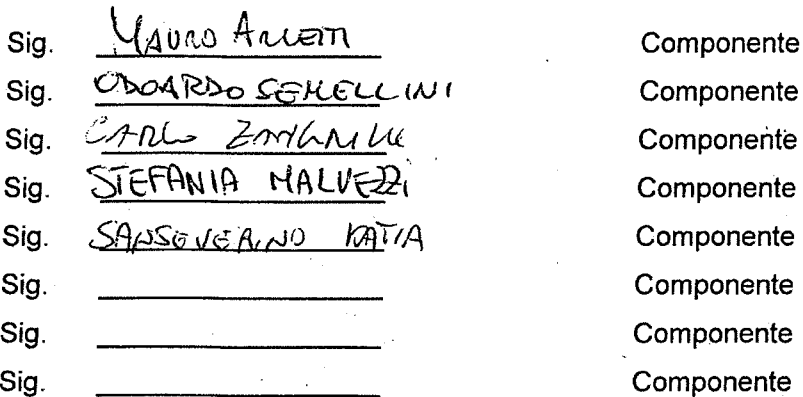 Sig. Mauro Arletti Componente
Sig. ODOARDO SEMELLINI Componente
Sig. CARLO Componente
Sig. STEFANIA MALVEZZI Componente
Sig. SANSEVERINO KATIA Componente
Sig. Componente
Sig. Componente
Sig. Componente